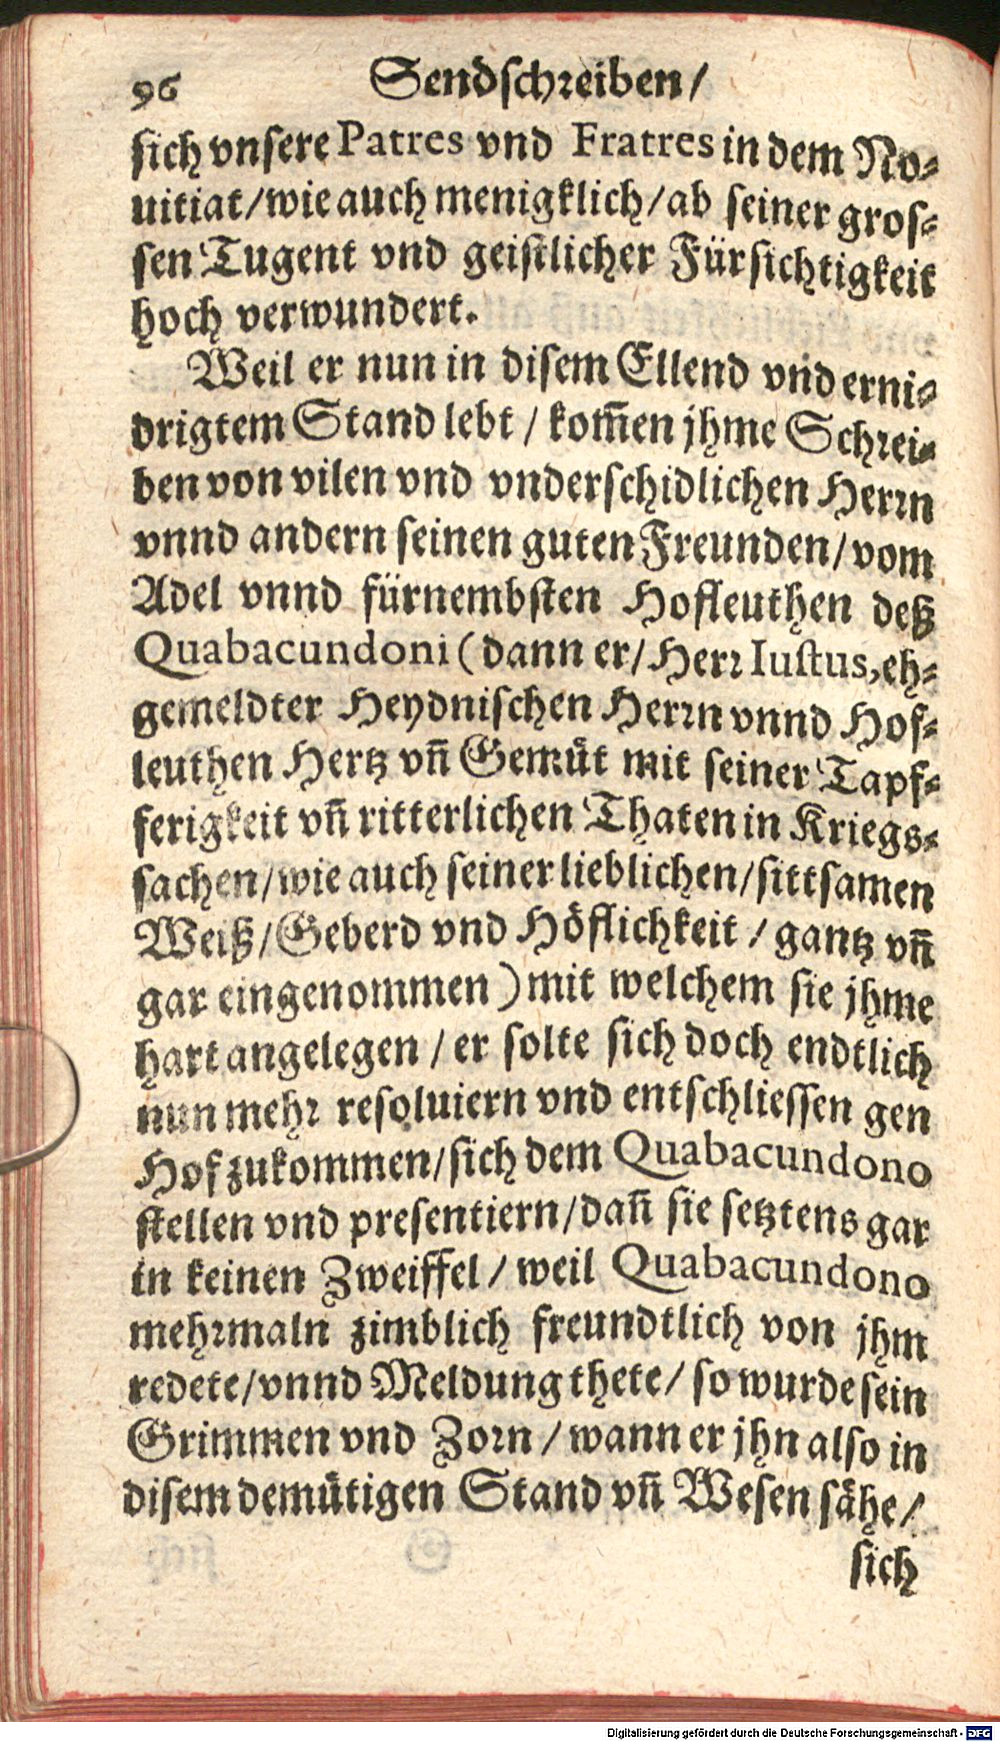 96 Sendschreiben/
sich vnsere Patres vnd Fratres in dem No-
uitiat/wie auch menigklich/ab seiner gros-
sen Tugent vnd geistlicher Fürsichtigkeit
hoch verwundert.
Weil er nun in disem Ellend vn̄d erni-
drigtem Stand lebt / kom̄en jhme Schrei-
ben von vilen vnd vnderschidlichen Herrn
vnnd andern seinen guten Freunden/vom
Adel vnnd fürnembsten Hofleuthen deß
Quabacundoni (dann er/Herr Iustus, eh-
gemeldter Heydnischen Herrn vnnd Hof-
leuthen Hertz vn̄ Gemüt mit seiner Tapf-
ferigkeit vn̄ ritterlichen Thaten in Kriegs-
sachen/wie auch seiner lieblichen/sittsamen
Weiß/Geberd vnd Höflichkeit / gantz vn̄
gar eingenommen) mit welchem sie jhme
hart angelegen / er solte sich doch endtlich
nun mehr resoluiern vnd entschliessen gen
Hof zukommen/sich dem Quabacundono
stellen vnd presentiern/dan̄ sie setztens gar
in keinen Zweiffel / weil Quabacundono
mehrmaln zimblich freundtlich von jhm
redete/vnnd Meldung thete/ so wurde sein
Grimmen vnd Zorn / wann er jhn also in
disem demütigen Stand vn̄ Wesen sähe/
sich
Digitalisierung gefördert durch die Deutsche Forschungsgemeinschaft - DFG